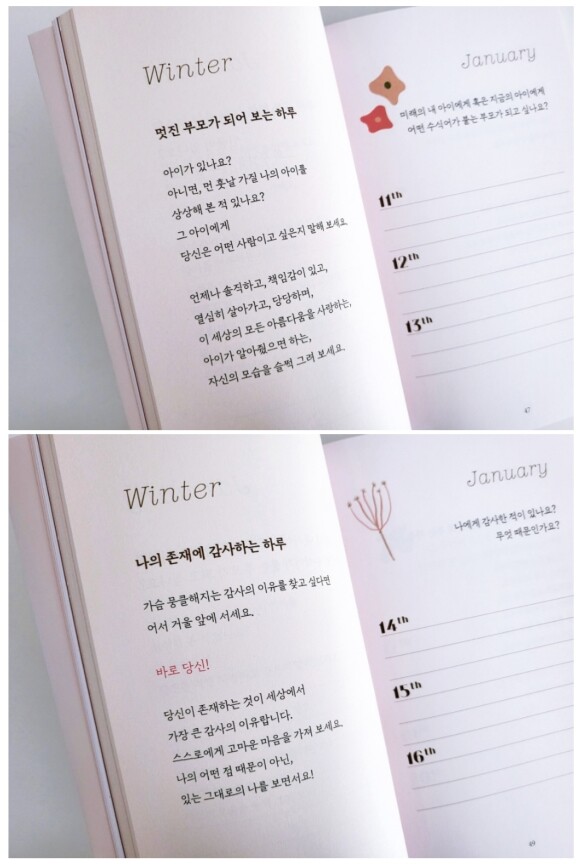 Winter
멋진 부모가 되어 보는 하루
아이가 있나요?
아니면, 먼 훗날 가질 나의 아이를
상상해 본 적 있나요?
그 아이에게
당신은 어떤 사람이고 싶은지 말해 보세요.
언제나 솔직하고, 책임감이 있고,
열심히 살아가고, 당당하며,
이 세상의 모든 아름다움을 사랑하는,
아이가 알아줬으면 하는,
자신의 모습을 슬쩍 그려 보세요.
January
미래의 내 아이에게 혹은 지금의 아이에게
어떤 수식어가 붙는 부모가 되고 싶나요?
11th
12th
13th
47
Winter
나의 존재에 감사하는 하루
가슴 뭉클해지는 감사의 이유를 찾고 싶다면
어서 거울 앞에 서세요.
바로 당신!
당신이 존재하는 것이 세상에서
가장 큰 감사의 이유랍니다.
스스로에게 고마운 마음을 가져 보세요.
나의 어떤 점 때문이 아닌,
있는 그대로의 나를 보면서요!
January
나에게 감사한 적이 있나요?
무엇 때문인가요?
14th
15th
16th
49